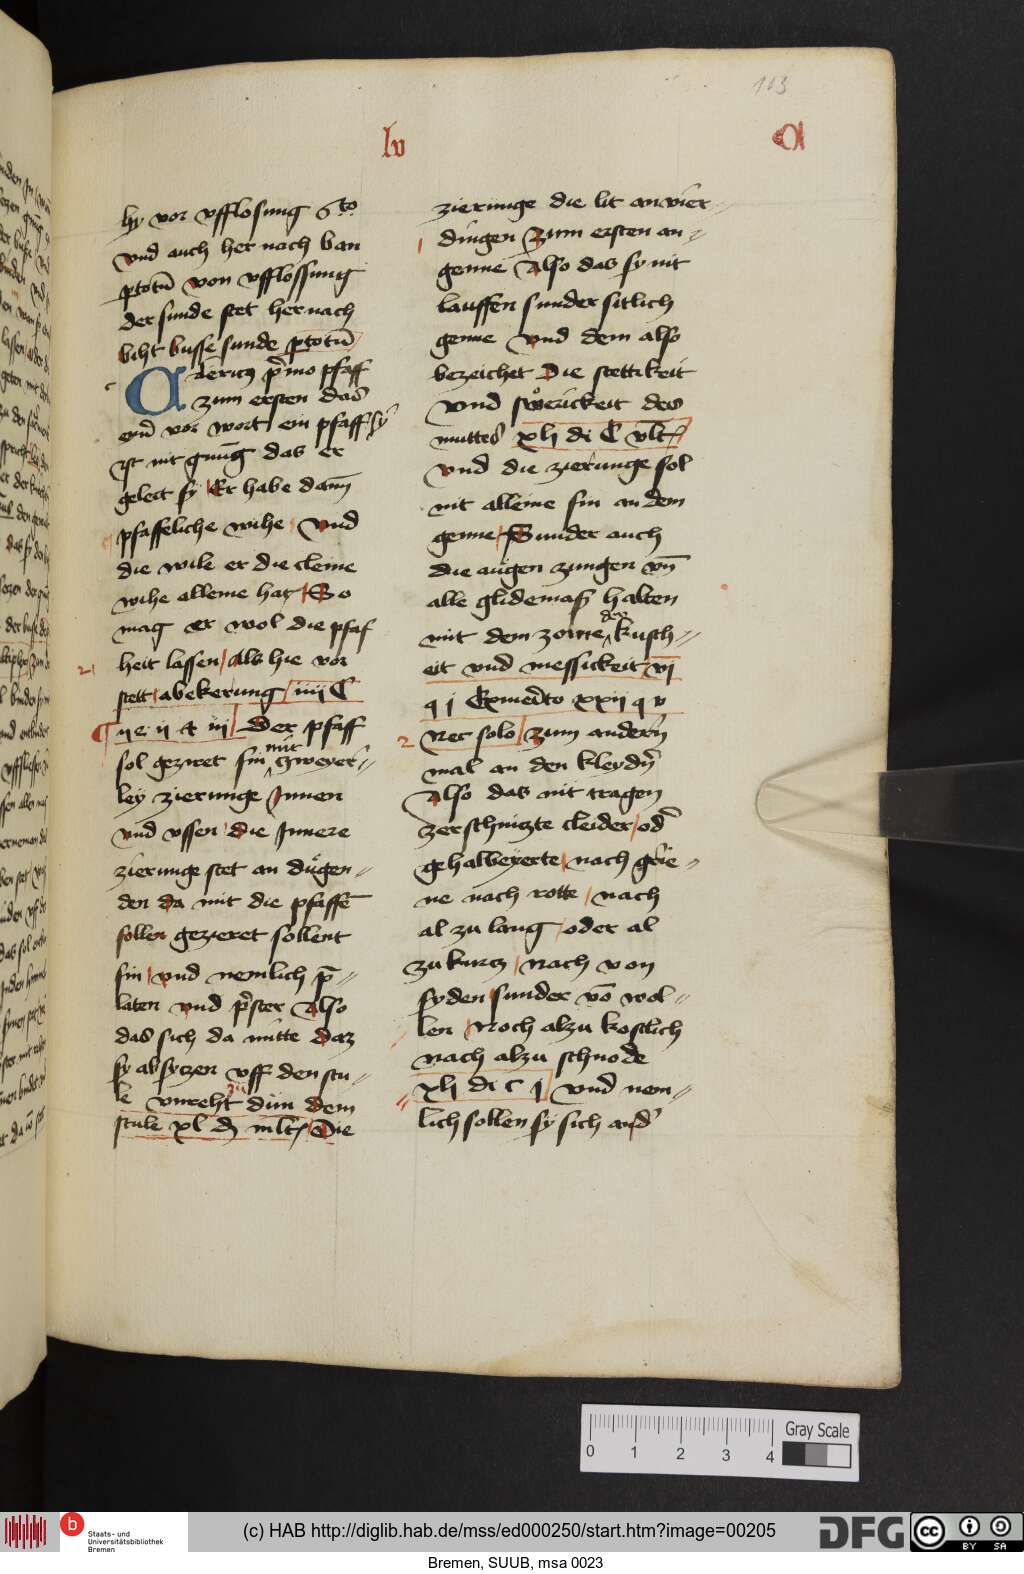 103
lv
hy vor vfflosung 6to
vnd auch her nach ban
ptotū von vfflossung
der sunde stet her nach
biht busse sunde ptotū
Clericus pͥmo pfaff
zum ersten das
vor wort ein pfaff sy
yst nit gnūg das er
geleit sy Er habe dann
pfaffeliche wihe vnd
die wile er die cleine
wihe alleine hat So
mag er wol die pfaf
heit lassen Als hie vor
stett abekerung iiij C
Der pfaff
sol geziret sin mit zweyer
ley zierunge Innen
vnd vssen die Innere
zierunge stet an dügen
den da mit die pfaffē
sollen gezieret sollent
sin vnd nemlich p̄
laten vnd pͥster Also
das sich da mitte daz
sy absyczen vff den stu
le vnreht zü dün dem
stule xl Die
zierunge die lit an vier
dingen zum ersten an
genne Also das sy nit
lauffen sunder sitlich
genne vnd dem also
bezeichet Die stettikeit
vnd swerickeit des
muttes xlj di C vlt
vnd die zierunge sol
nit alleine sin an dem
genne Sunder auch
die augen zungen vn̄
alle glidemaß halten
mit dem zorne der kusch
eit vnd messickeit vj
q j xxij q v
Nec solo zum andern
mal an den kleydn̄
Also das nit tragen
zerschnizte cleider od
gehalbeyerte nach grie
ne nach rotte nach
al zu lang oder al
zu kurcz Nach von
syden sunder vō wol
len Noch alzu kostlich
nach alzu schnode
xlj di c j vnd nem
lich sollen sy sich and
0 1 2 3 4
Gray Scale
Staats- und
Universitätsbibliothek
Bremen
(c) HAB http://diglib.hab.de/mss/ed000250/start.htm?image=00205
DFG
cc BY SA
Bremen, SUUB, msa 0023